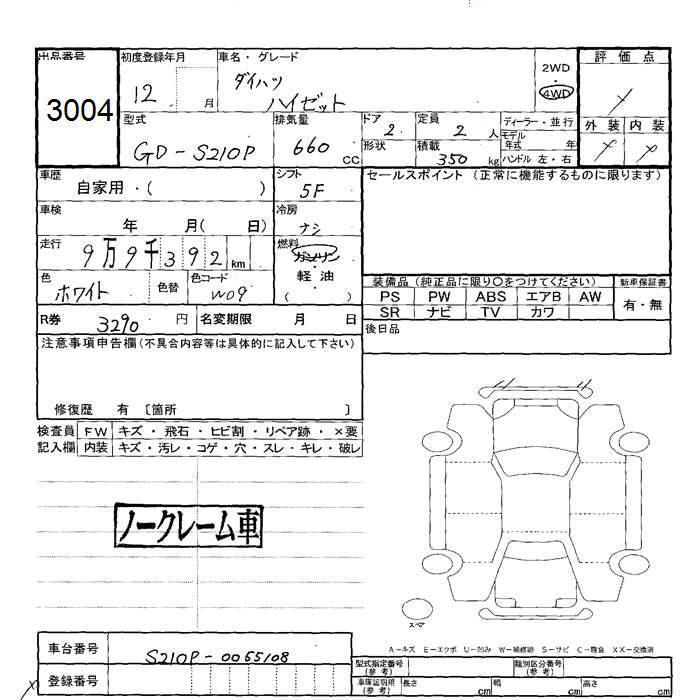 出品番号 初度登録年月 車名・グレード 2WD 評価点
3004 12 月 ダイハツ ハイゼット ・ 4WD
型式 排気量 ドア 2 定員 2 人 ディーラー・並行 外装 内装
GD-S210P 660 cc 形状 積載 350 kg モデル年式 年
ハンドル 左・右
車歴 自家用・( ) シフト 5F セールスポイント (正常に機能するものに限ります)
車検 年 月( 日) 冷房 ナシ
走行 9万9千392 km 燃料 ガソリン
軽油
( )
色 ホワイト 色替 色コード W09
装備品 (純正品に限り○をつけてください) 新車保証書
PS PW ABS エアB AW 有・無
SR ナビ TV カワ
R券 3290 円 名変期限 月 日 後日品
注意事項申告欄(不具合内容等は具体的に記入して下さい)
修復歴 有 〔箇所 〕
検査員 FW キズ・飛石・ヒビ割・リペア跡・×要
記入欄 内装 キズ・汚レ・コゲ・穴・スレ・キレ・破レ
ノークレーム車
スペア
A-キズ E-エクボ U-凹み W-補修跡 S-サビ C-腐食 XX-交換済
車台番号 S210P-0055108
型式指定番号(参考) 類別区分番号(参考)
登録番号 車庫証明用(参考) 長さ cm 幅 cm 高さ cm